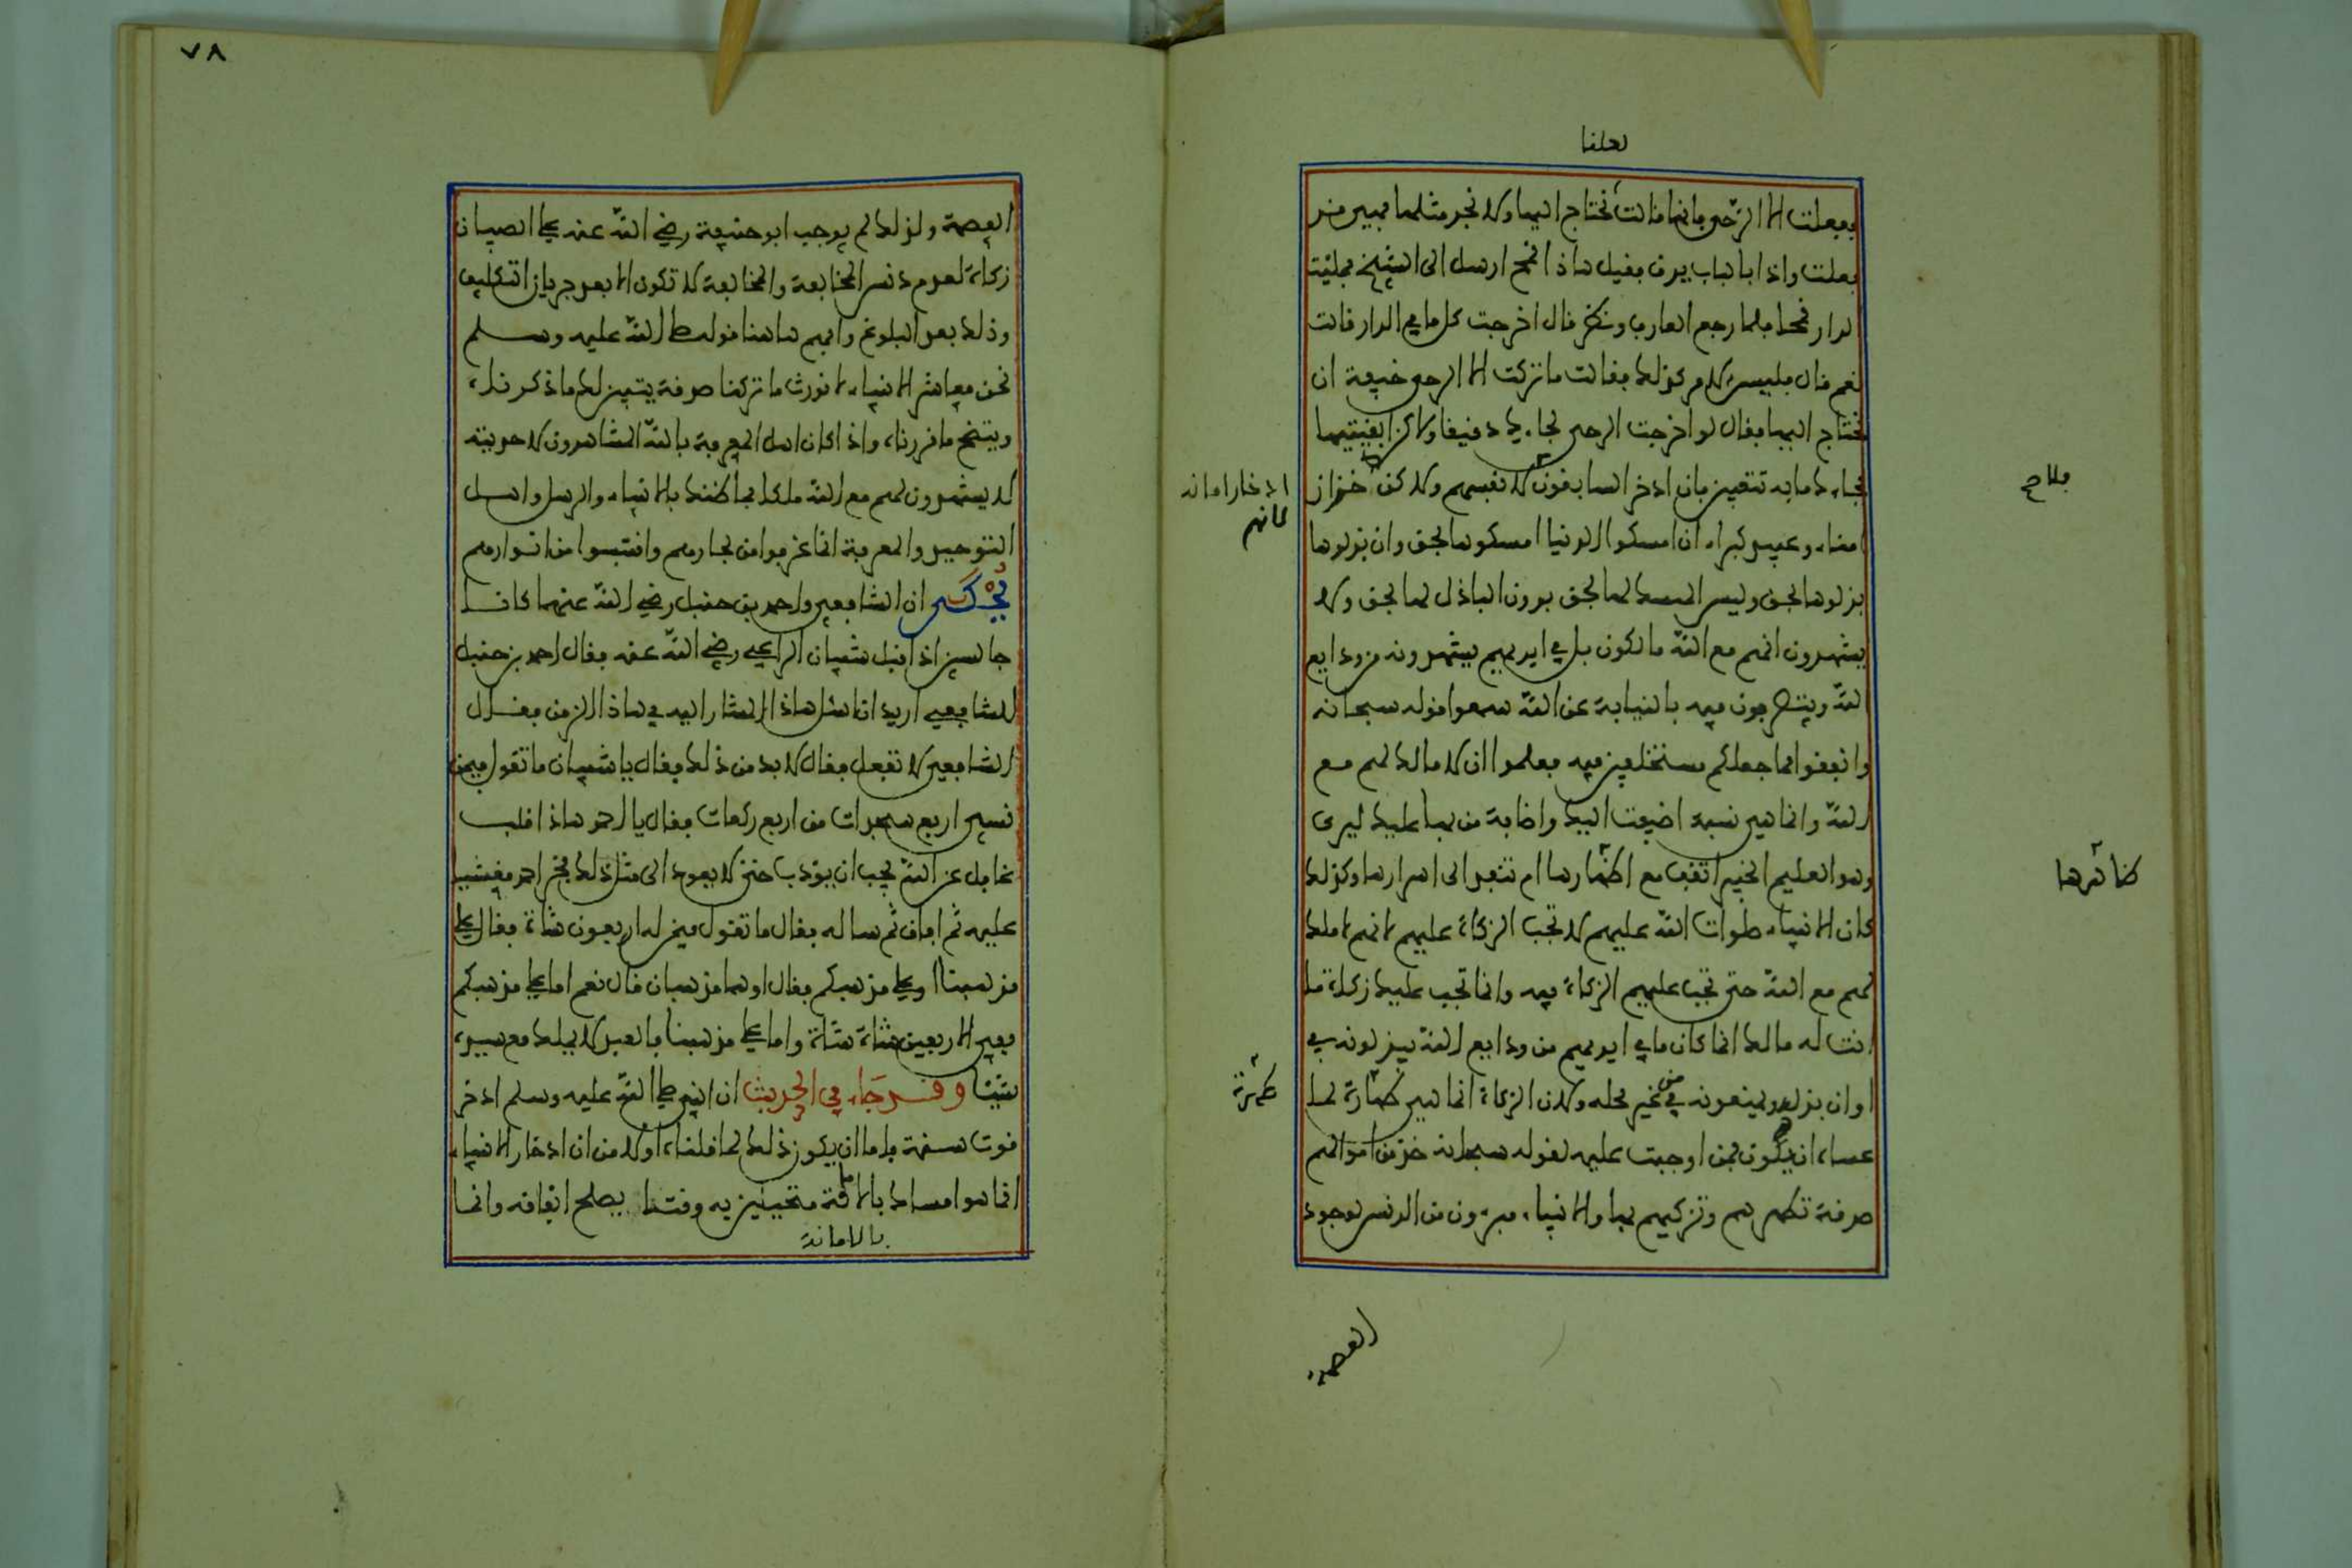 لعلنا
ففعلت الا الرحى فانها قالت نحتاج اليها ولا نجد مثلها فبين من
فعلت واذا بالباب يدق فقيل هاذا قمح ارسل الى الشيخ فملئت
لدار قمحا فلما رجع العارف ونظر قال اخرجت كل ما في الدار قالت
نعم قال فليس الامر كذلك فقالت ما تركت الا الرحى خيفة ان
نحتاج اليها فقال لو اخرجت الرحى لجاءك دقيقا ولاكن ابقيتها
فجاءك ما به تتعبين فان ادخر السابقون لا لانفسهم ولاكن خزان
امناء وعبيد كبراء ان امسكوا الدنيا امسكوها بحق وان بذلوها
بذلوها بحق وليس الممسك لها بحق بدون الباذل لها بحق ولا
يشهدون انهم مع الله مالكون بل في ايديهم يشهدونه من ودايع
الله ويتصرفون فيه بالنيابة عن الله سمعوا قوله سبحانه
وانفقوا مما جعلكم مستخلفين فيه فعلموا ان لا مالك لهم مع
الله وانما هي نسبة اضيفت اليك واضافة من بها عليك ليرى
وهو العليم الخبير اتقف مع اظهارها ام تنفد الى اسرارها وكذلك
كان الانبياء صلوات الله عليهم لا تجب الزكاة عليهم لانهم لا ملك
لهم مع الله حتى تجب عليهم الزكاة فيه وانما تجب عليك زكاة ما
انت له مالك انما كان ما في ايديهم من ودايع الله يبذلونه في
اوان بذله ويمنعونه من غير محله ولان الزكاة انما هي طهارة لما
عساه ان يكون ممن اوجبت عليه لقوله سبحانه خذ من اموالهم
صدقة تطهرهم وتزكيهم بها والانبياء مبرءون من الدنس لوجود
العصمة
ادخار امانة
لانهم
فلاح
ظاهرها
طهرة
٧٨
العصمة ولذلك لم يوجب ابو حنيفة رضي الله عنه على الصبيان
زكاة لعدم دنس المخالفة والمخالفة لا تكون الا بعد جريان التكليف
وذلك بعد البلوغ وافهم هاهنا قوله صلى الله عليه وسلم
نحن معاشر الانبياء لا نورث ما تركنا صدقة يتبين لك ما ذكرناه
ويتضح ما قررناه واذا كان اهل المعرفة بالله المشاهدون لاحديته
لا يشهدون لهم مع الله ملكا فما ظنك بالانبياء والرسل واهل
التوحيد والمعرفة انما غرفوا من بحارهم واقتبسوا من انوارهم
يحكى ان الشافعي واحمد بن حنبل رضي الله عنهما كانا
جالسين اذ اقبل شيبان الراعي رضي الله عنه فقال احمد بن حنبل
للشافعي اريد ان اسئل هاذا المشار اليه في هاذا الزمن فقال
الشافعي لا تفعل فقال لا بد من ذلك فقال يا شيبان ما تقول فيمن
نسي اربع سجدات من اربع ركعات فقال يا احمد هاذا قلب
غافل عن الله يجب ان يؤدب حتى لا يعود الى مثل ذلك فخر احمد مغشيا
عليه ثم افاق ثم ساله فقال ما تقول فيمن له اربعون شاة فقال على
مذهبنا او على مذهبكم فقال اوهما مذهبان قال نعم اما على مذهبكم
ففي الاربعين شاة شاة واما على مذهبنا فالعبد لا يملك مع سيده
شيئا وقد جاء في الحديث ان النبي صلى الله عليه وسلم ادخر
قوت سنة فاما ان يكون ذلك لما قلناه اولا من ان ادخار الانبياء
انما هو امساك بالامانة متحينين به وقتا يصلح انفاقه وانما
بالامانة